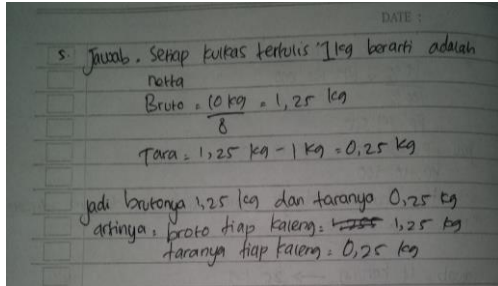 DATE :
5. Jawab. Setiap kulkas tertulis "1 kg berarti adalah
netta
Bruto = 10 kg = 1,25 kg
8
Tara = 1,25 kg - 1 kg = 0,25 kg
jadi brutonya 1,25 kg dan taranya 0,25 kg
artinya = broto tiap kaleng = 1,25 kg
taranya tiap kaleng = 0,25 kg